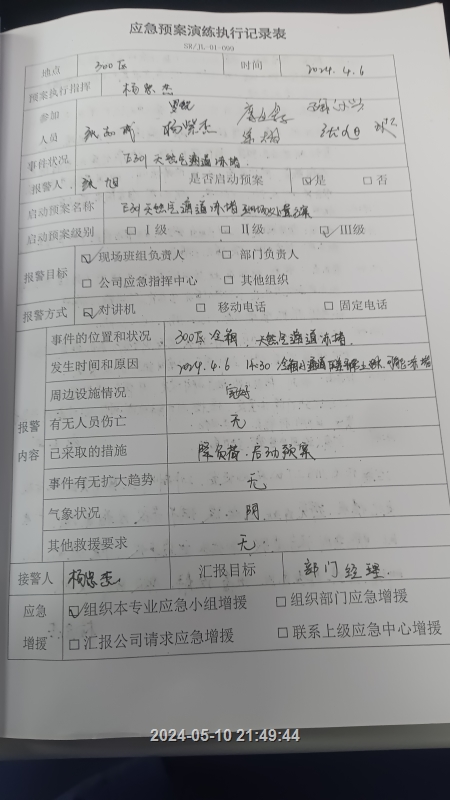 应急预案演练执行记录表
SX/JL-01-099
地点 300区 时间 2024.4.6
预案执行指挥 杨思杰
参加
人员
事件状况 E301 天然气通道冻堵.
报警人 旭 是否启动预案 ☑是 □否
启动预案名称 E301 天然气通道冻堵现场处置方案
启动预案级别 □Ⅰ级 □Ⅱ级 ☑Ⅲ级
报警目标 ☑现场班组负责人 □部门负责人
□公司应急指挥中心 □其他组织
报警方式 ☑对讲机 □移动电话 □固定电话
报警
内容
事件的位置和状况 300区冷箱, 天然气通道冻堵.
发生时间和原因 2024.4.6 14:30 冷箱 通道 冻堵
周边设施情况 完好
有无人员伤亡 无
已采取的措施 降负荷.启动预案
事件有无扩大趋势 无
气象状况 阴
其他救援要求 无.
接警人 杨思杰 汇报目标 部门经理.
应急
增援
☑组织本专业应急小组增援 □组织部门应急增援
□汇报公司请求应急增援 □联系上级应急中心增援
2024-05-10 21:49:44